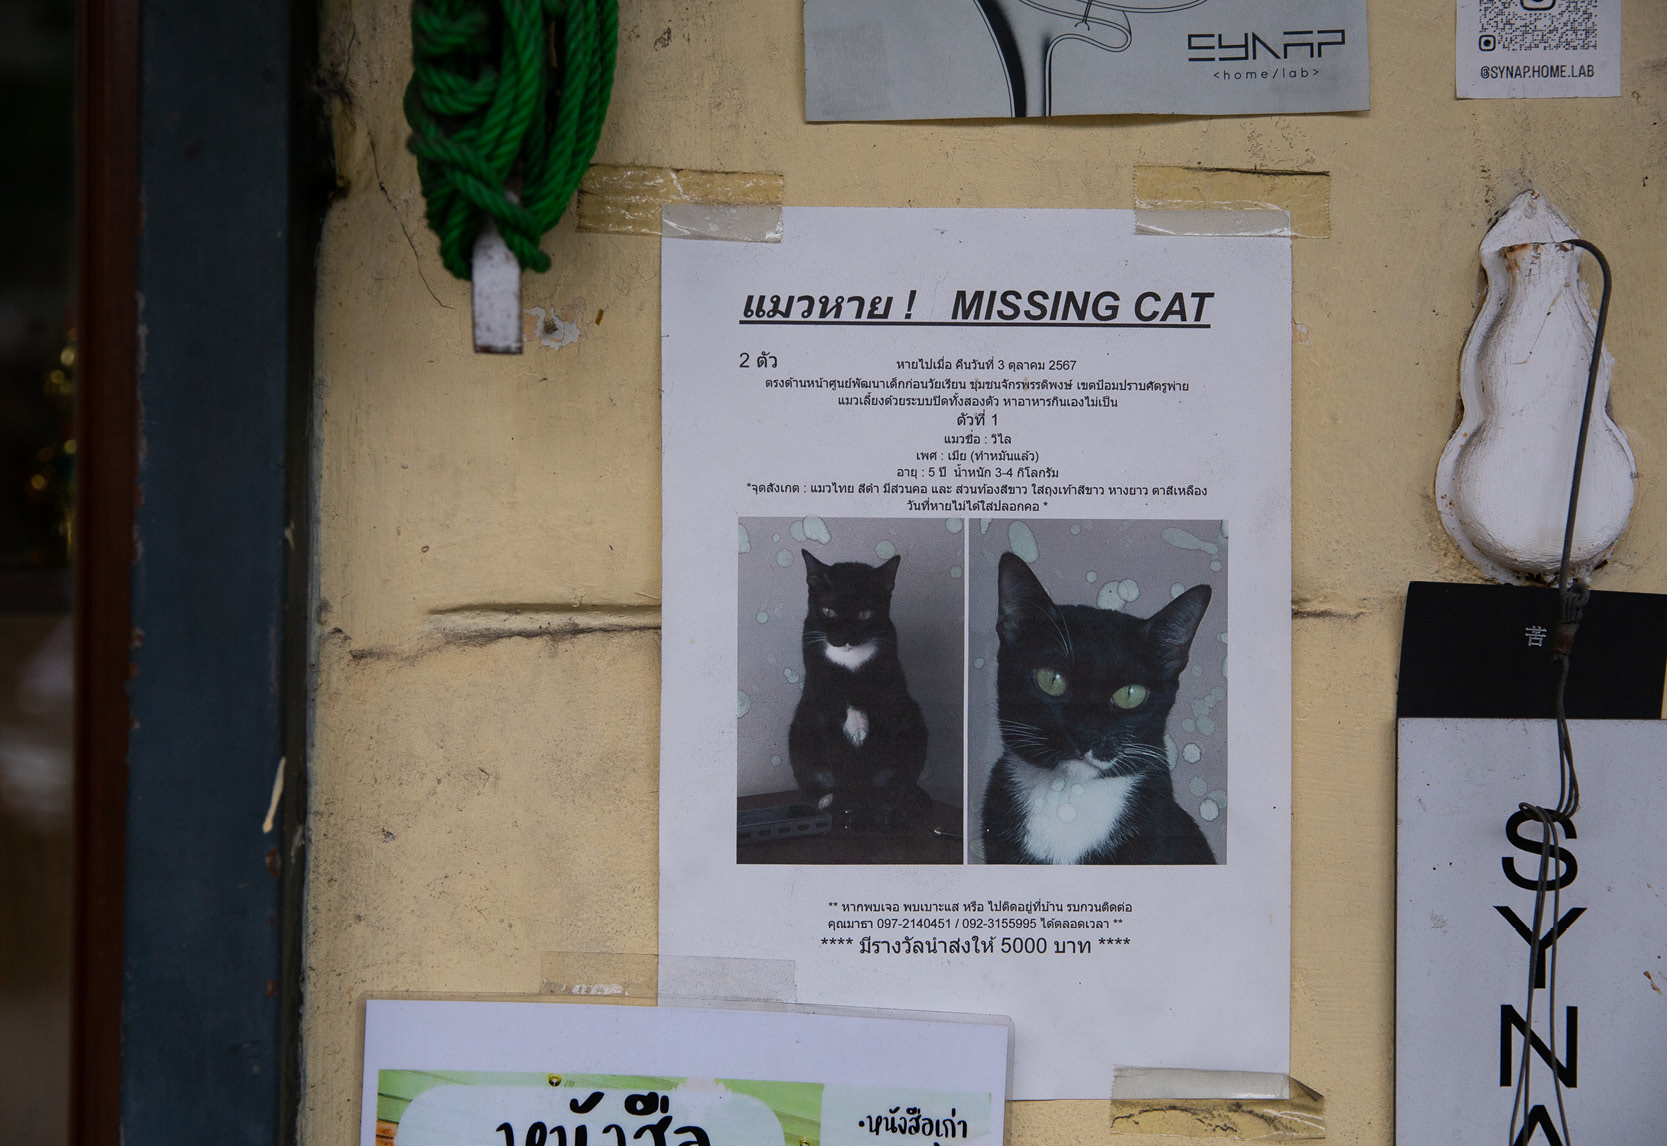 SYNAP
<home/lab>
@SYNAP.HOME.LAB
แมวหาย ! MISSING CAT
2 ตัว
หายไปเมื่อ คืนวันที่ 3 ตุลาคม 2567
ตรงด้านหน้าศูนย์พัฒนาเด็กก่อนวัยเรียน ชุมชนจักรพรรดิพงษ์ เขตป้อมปราบศัตรูพ่าย
แมวเลี้ยงด้วยระบบปิดทั้งสองตัว หาอาหารกินเองไม่เป็น
ตัวที่ 1
แมวชื่อ : วิไล
เพศ : เมีย (ทำหมันแล้ว)
อายุ : 5 ปี น้ำหนัก 3-4 กิโลกรัม
*จุดสังเกต : แมวไทย สีดำ มีส่วนคอ และ ส่วนท้องสีขาว ใส่ถุงเท้าสีขาว หางยาว ตาสีเหลือง
วันที่หายไม่ได้ใส่ปลอกคอ *
** หากพบเจอ พบเบาะแส หรือ ไปติดอยู่ที่บ้าน รบกวนติดต่อ
คุณมาธา 097-2140451 / 092-3155995 ได้ตลอดเวลา **
**** มีรางวัลนำส่งให้ 5000 บาท ****
苦
SYNA
หนังสือ
•หนังสือเก่า